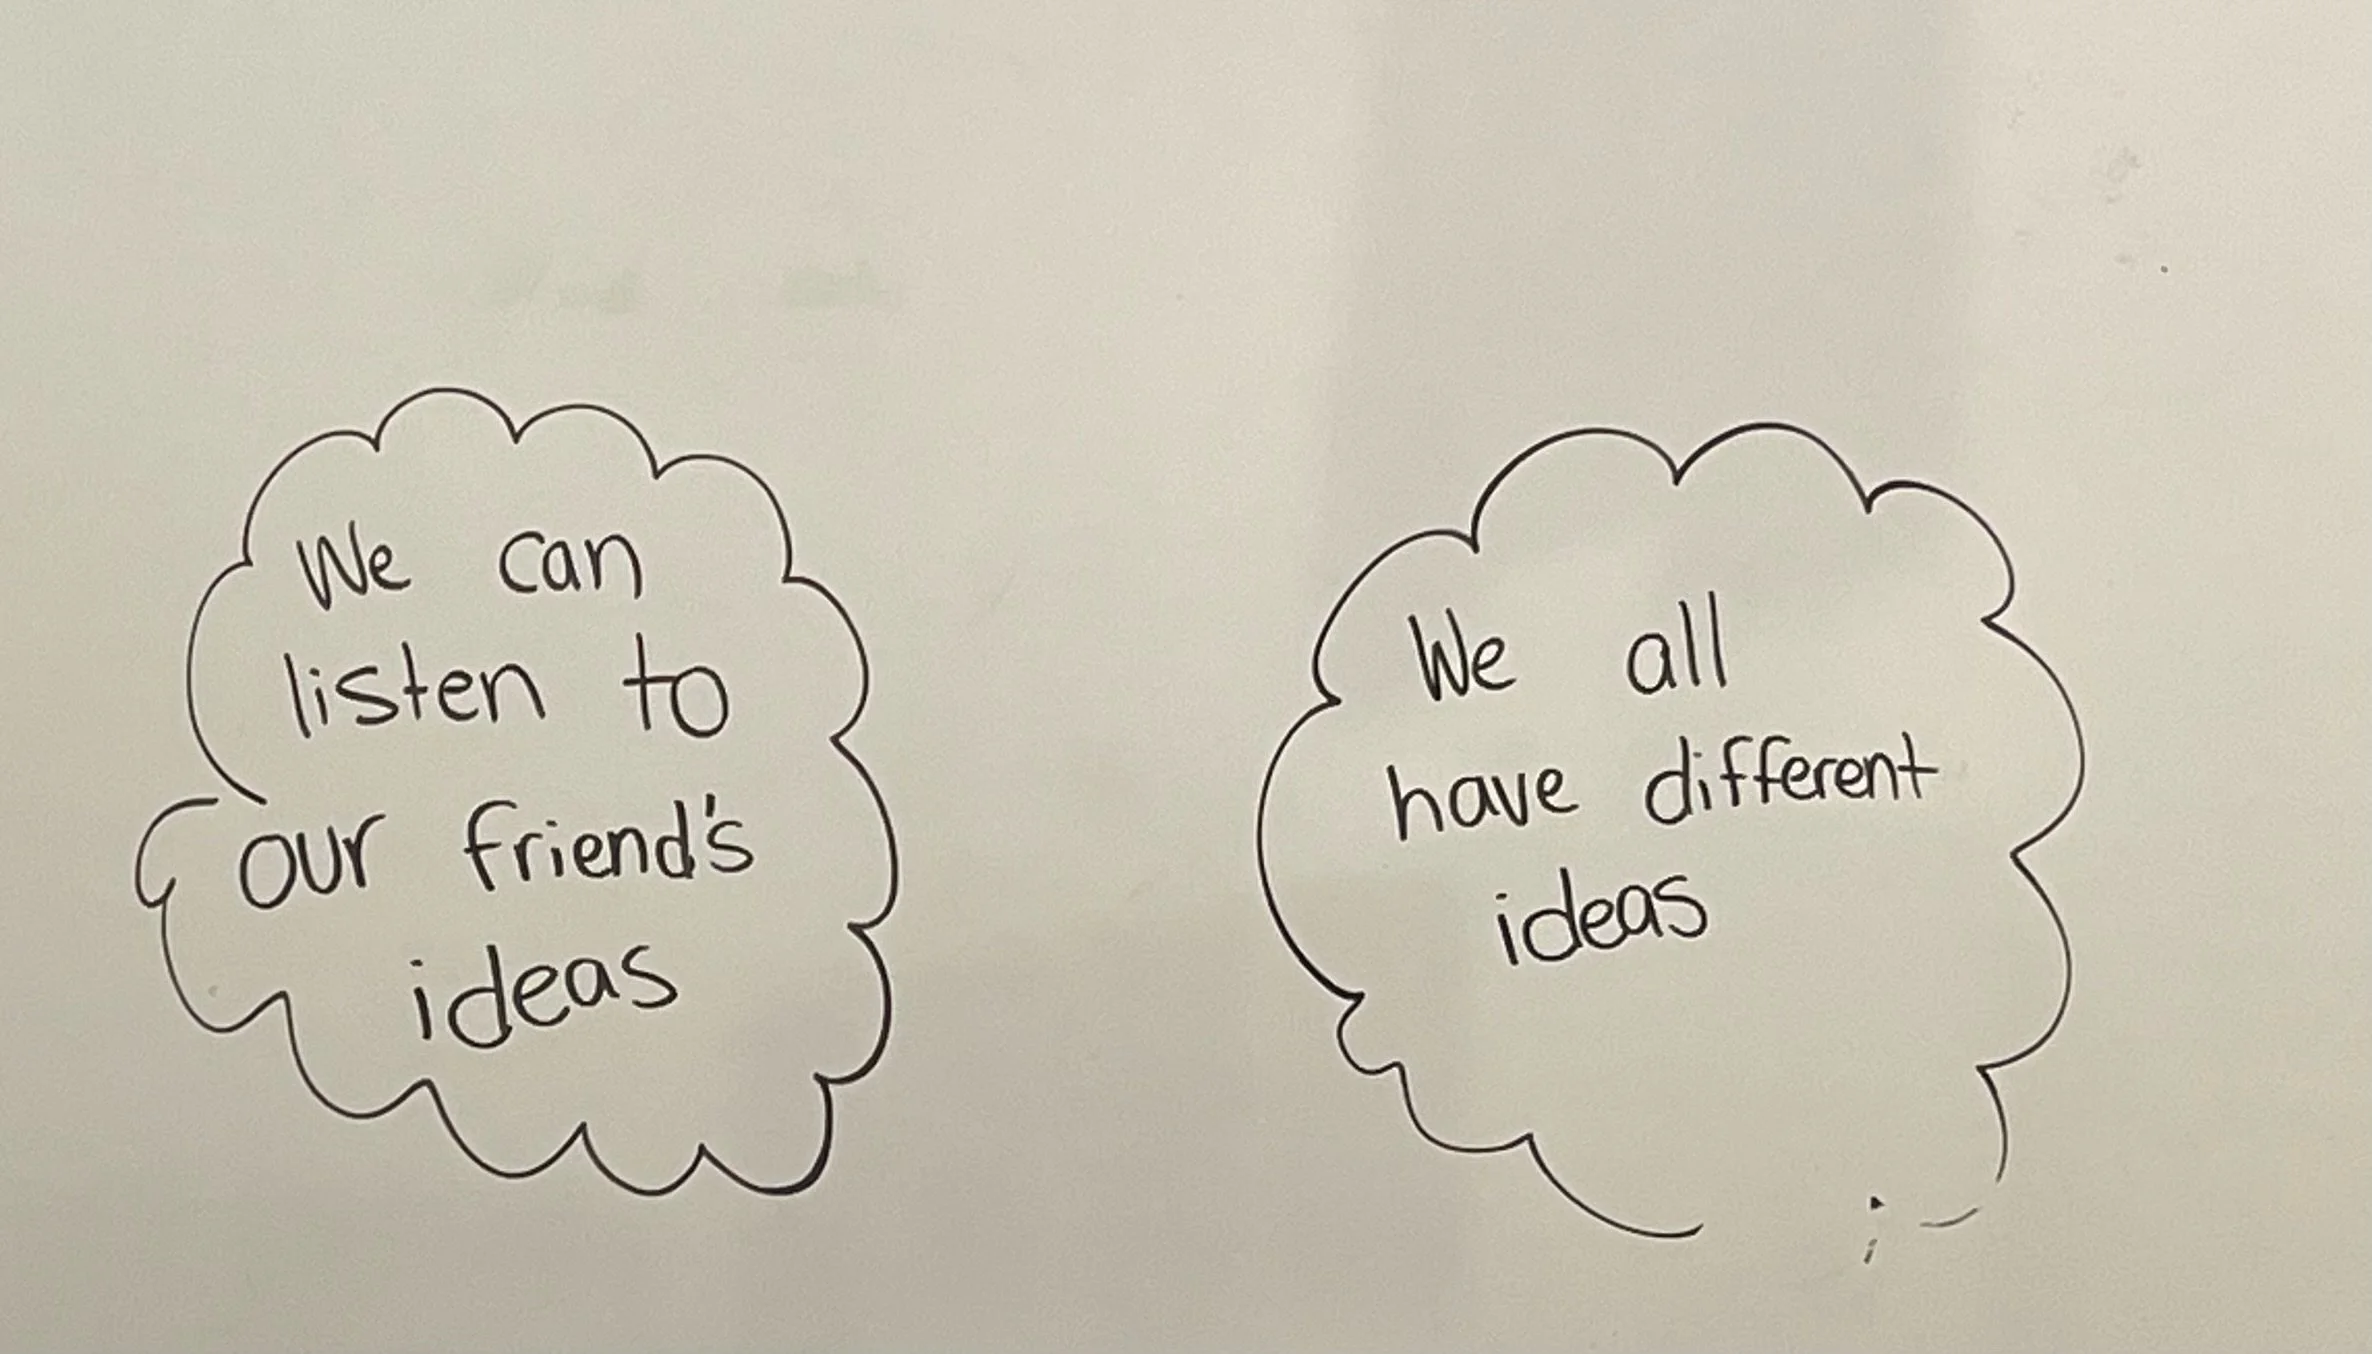 We can
listen to
our friend's
ideas
We all
have different
ideas